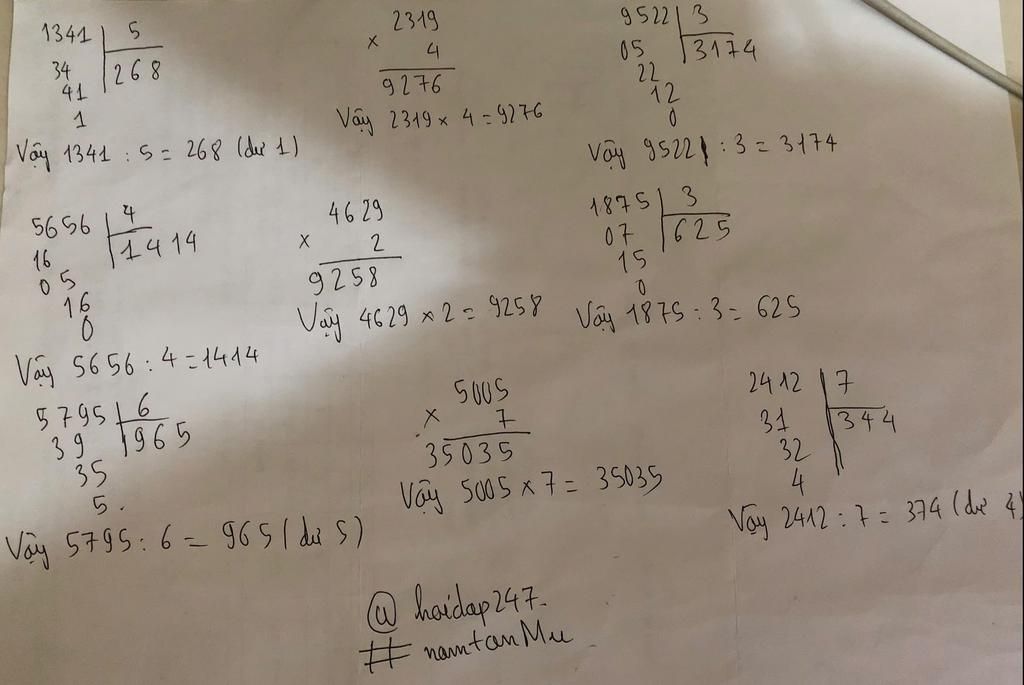 1341 5
34 268
41
1
Vậy 1341 : 5 = 268 (dư 1)
2319
× 4
9276
Vậy 2319 × 4 = 9276
9522 3
05 3174
22
12
0
Vậy 9522 : 3 = 3174
5656 4
16 1414
05
16
0
Vậy 5656 : 4 = 1414
4629
× 2
9258
Vậy 4629 × 2 = 9258
1875 3
07 625
15
0
Vậy 1875 : 3 = 625
5795 6
39 965
35
5.
Vậy 5795 : 6 = 965 (dư 5)
5005
× 7
35035
Vậy 5005 × 7 = 35035
2412 7
31 344
32
4
Vậy 2412 : 7 = 374 (dư 4)
@ hoidap247.
# namtanMu